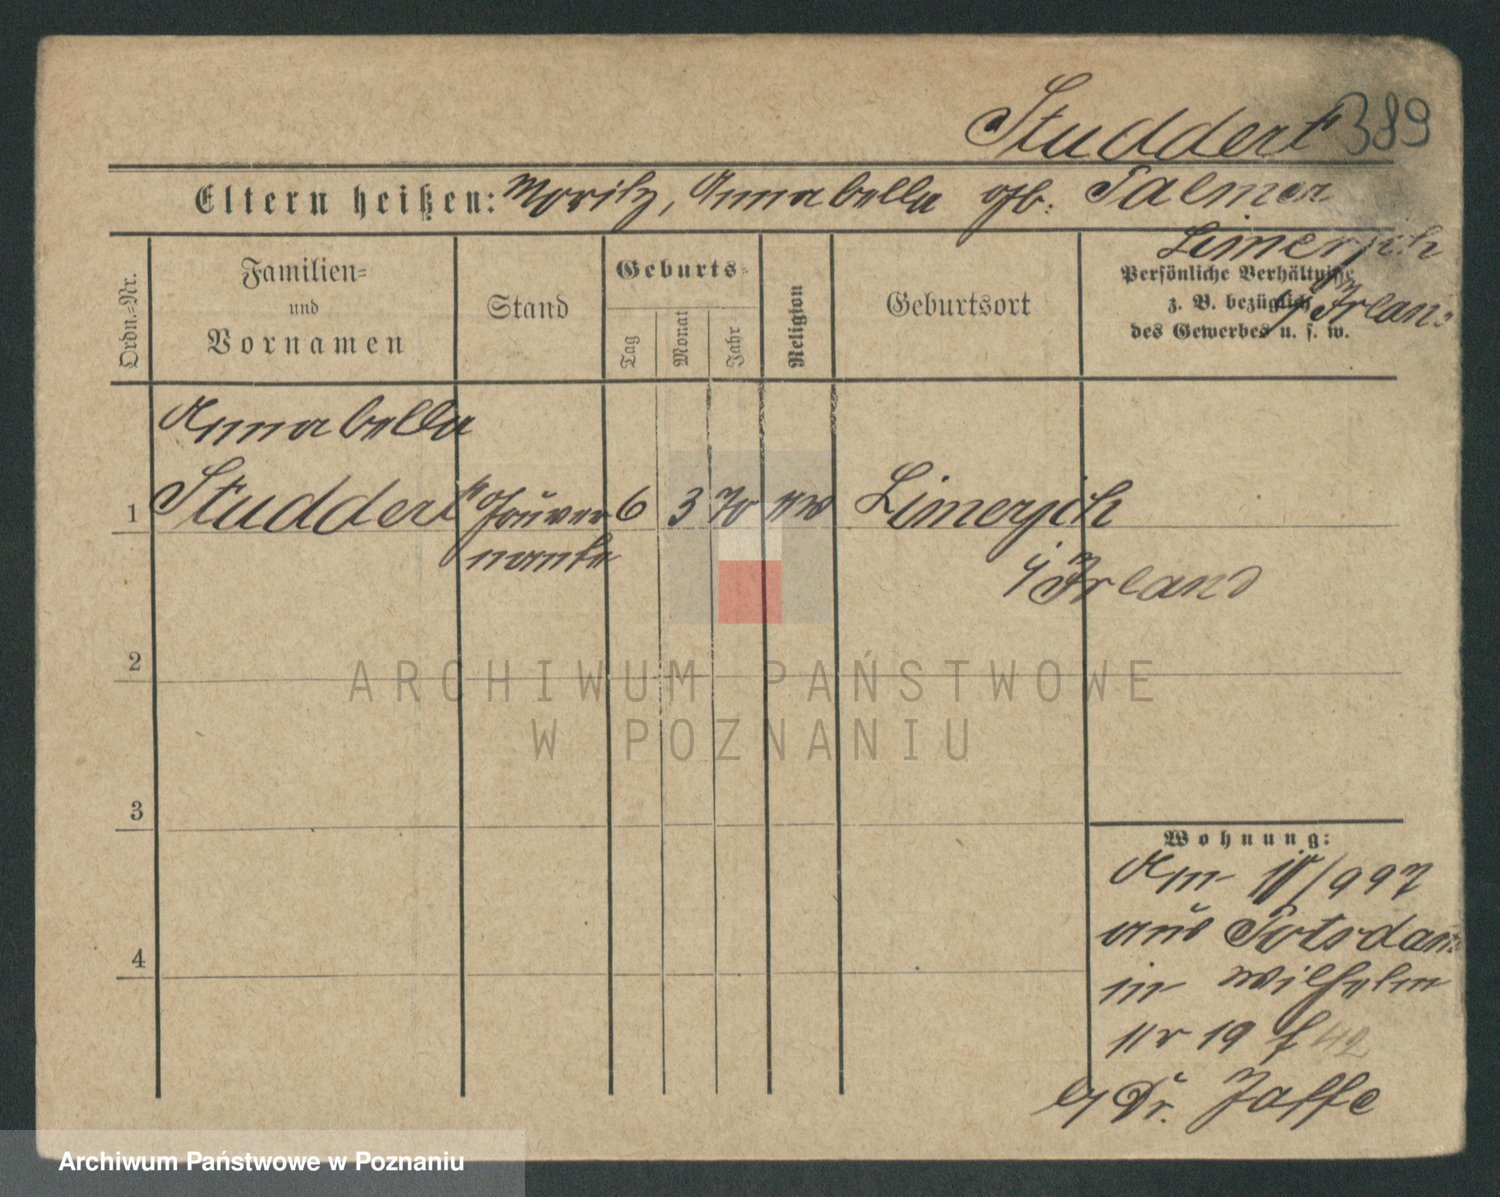 Studdert 389
Eltern heißen: Moritz, Annabella geb. Palmer
Limerjich
i/ Irland
Ordn.-Nr.
Familien-
und
Vornamen
Stand
Geburts-
Tag
Monat
Jahr
Religion
Geburtsort
Persönliche Verhältnisse
z. B. bezüglich
des Gewerbes u. s. w.
Annabella
1 Studdert Gouver 6 3 70 Limerjich
nante i/ Irland
2
3
4
Wohnung:
/997
aus Potsdam
in Wilhelm
19 42
b/ Dr. Jaffe
ARCHIWUM PAŃSTWOWE
W POZNANIU
Archiwum Państwowe w Poznaniu